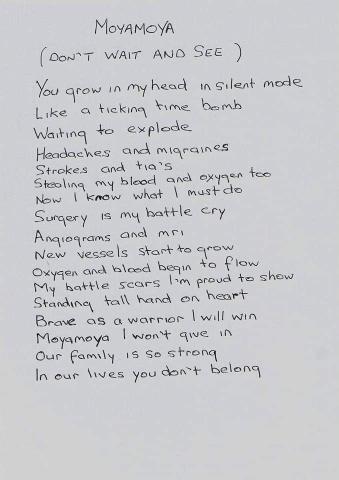 MOYAMOYA
(DON'T WAIT AND SEE)
You grow in my head in silent mode
Like a ticking time bomb
Waiting to explode
Headaches and migraines
Strokes and tia's
Stealing my blood and oxygen too
Now I know what I must do
Surgery is my battle cry
Angiograms and mri
New vessels start to grow
Oxygen and blood begin to flow
My battle scars I'm proud to show
Standing tall hand on heart
Brave as a warrior I will win
Moyamoya I won't give in
Our family is so strong
In our lives you don't belong